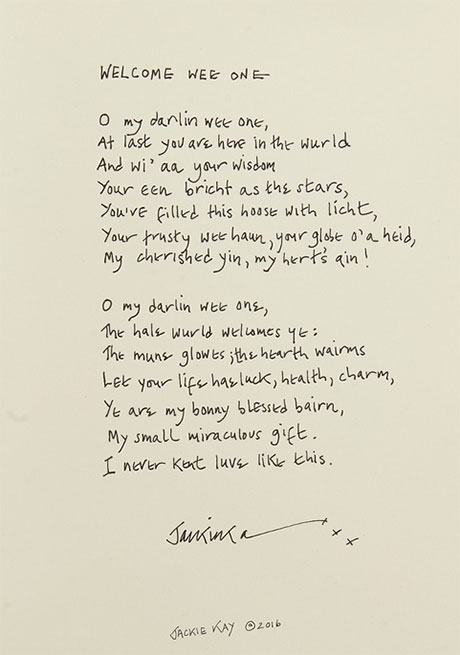 WELCOME WEE ONE
O my darlin wee one,
At last you are here in the wurld
And wi' aa your wisdom
Your een bricht as the stars,
You've filled this hoose with licht,
Your trusty wee haun, your globe o' a heid,
My cherished yin, my hert's ain!
O my darlin wee one,
The hale wurld welcomes ye:
The mune glowes; the hearth wairms
Let your life hae luck, health, charm,
Ye are my bonny blessed bairn,
My small miraculous gift.
I never kent luve like this.
JACKIE KAY ©2016